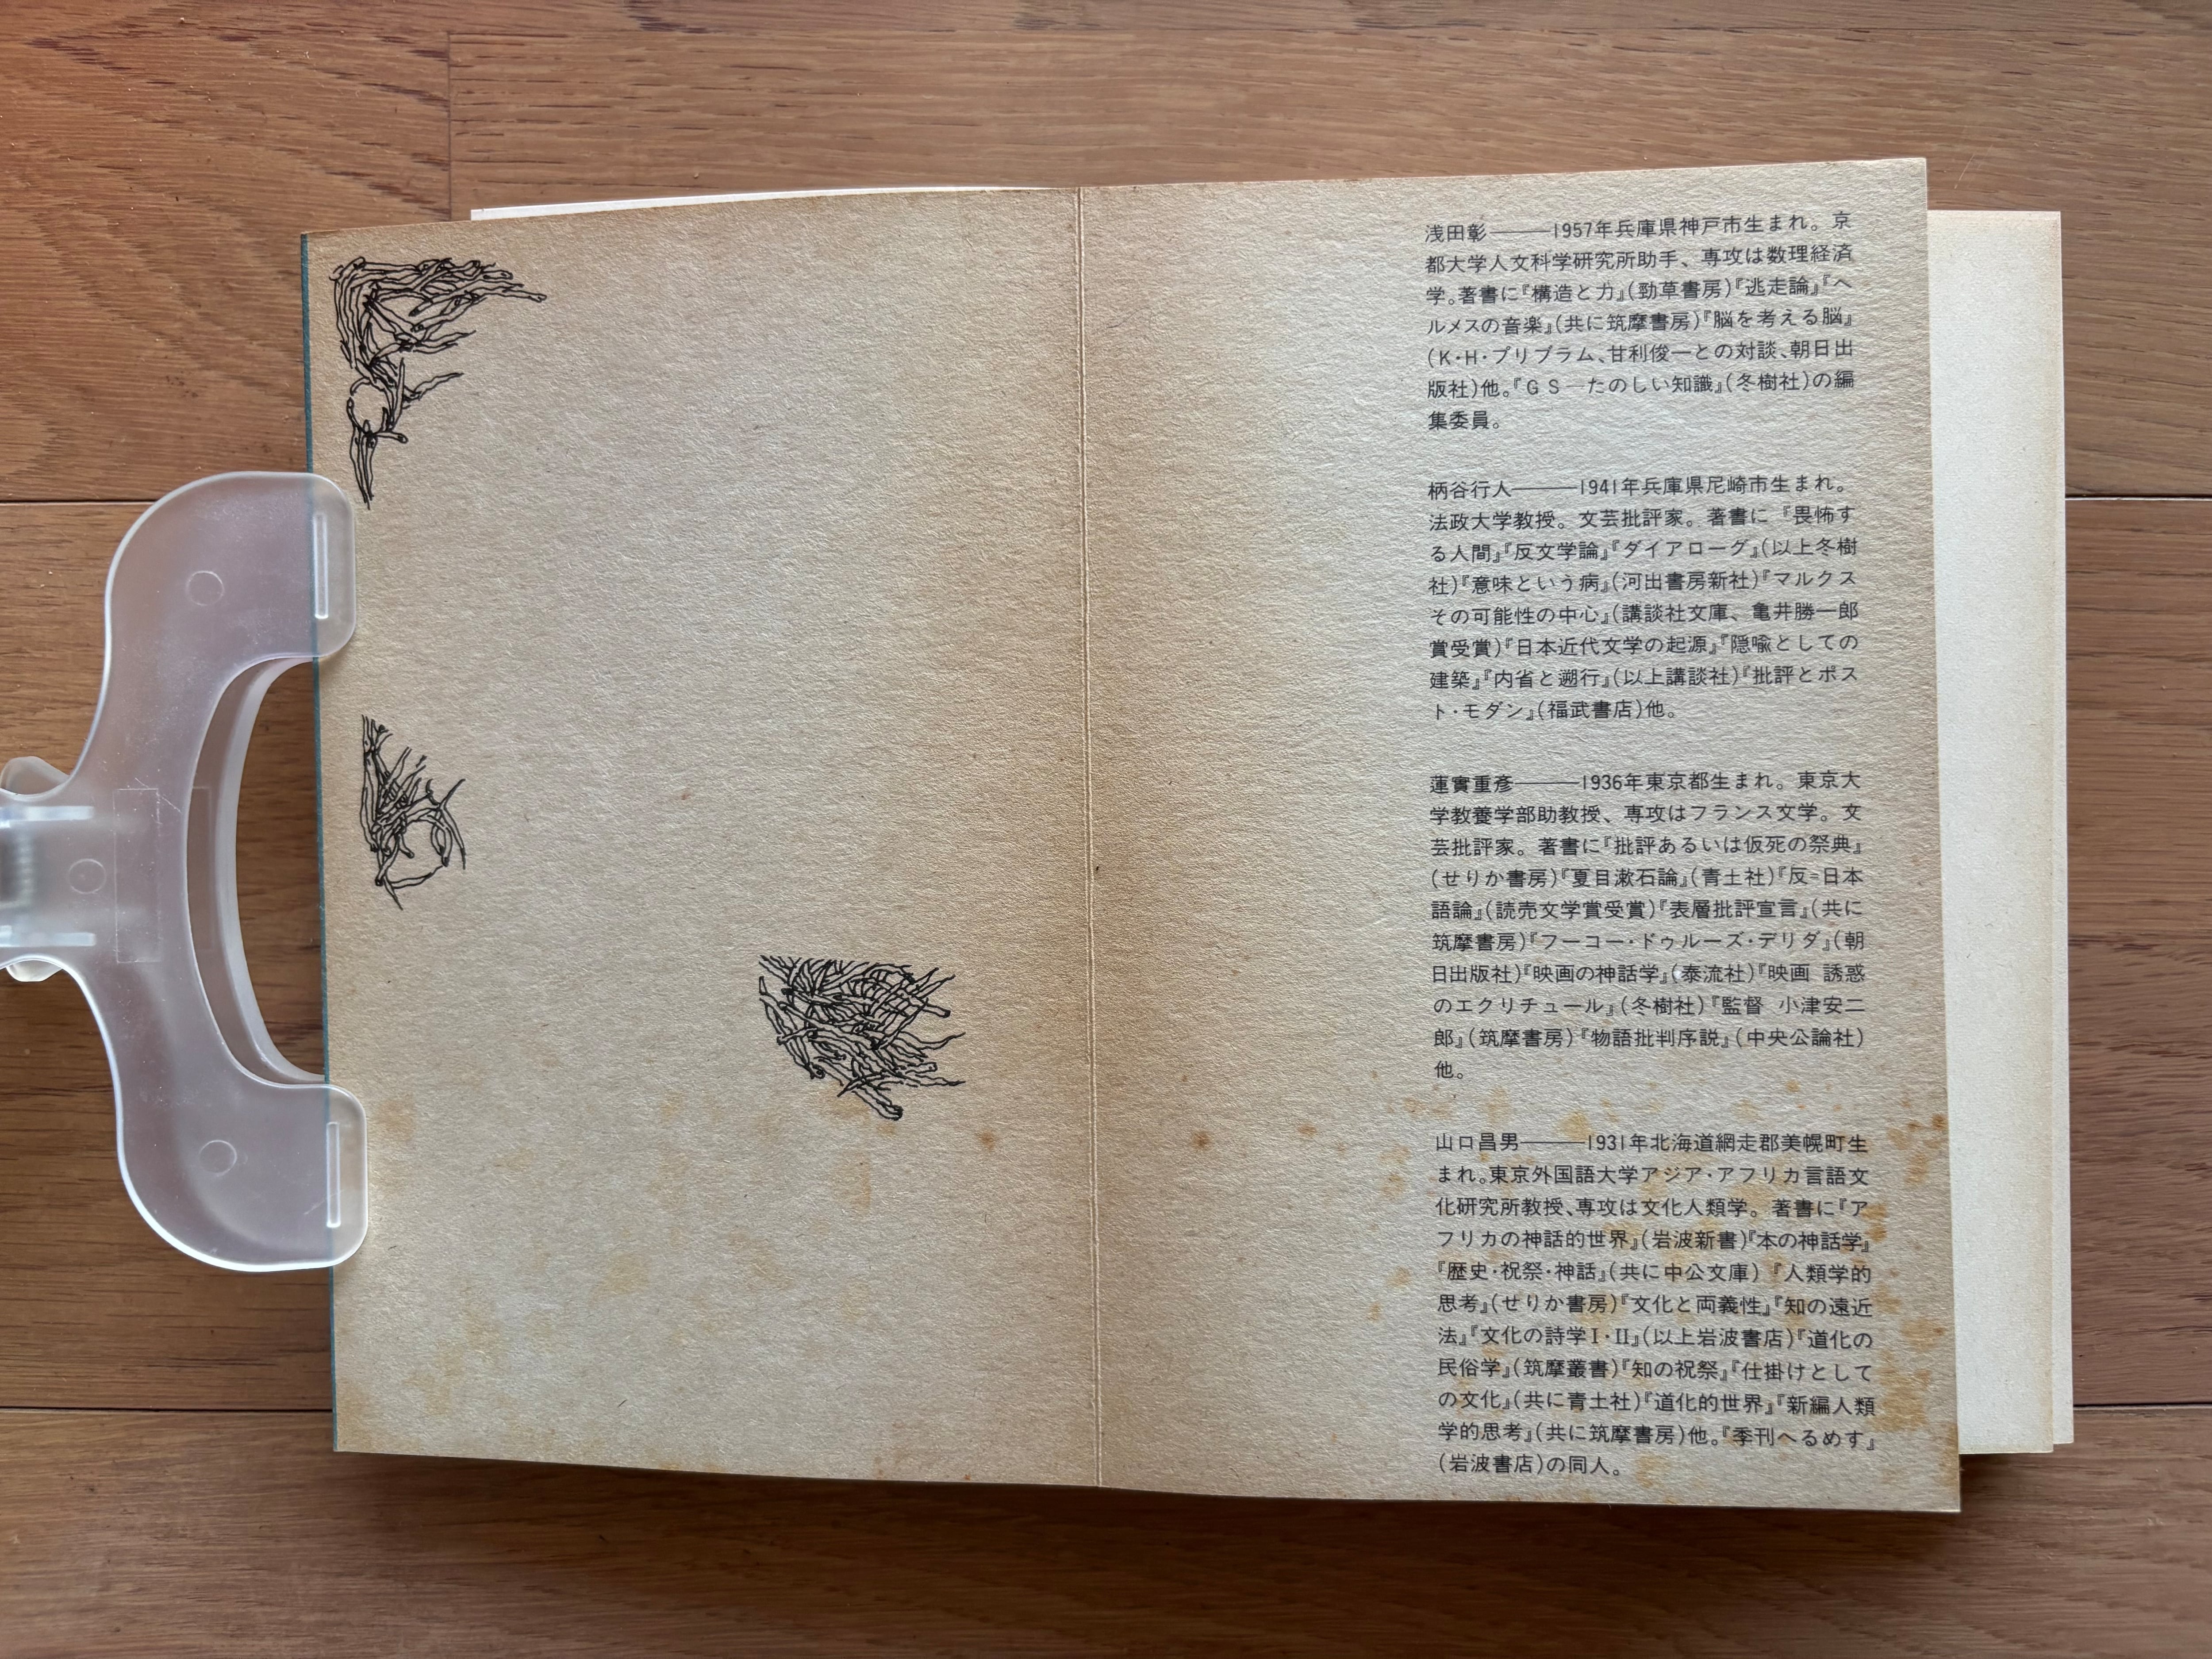 浅田彰———1957年兵庫県神戸市生まれ。京
都大学人文科学研究所助手、専攻は数理経済
学。著書に『構造と力』(勁草書房)『逃走論』『ヘ
ルメスの音楽』(共に筑摩書房)『脳を考える脳』
(K・H・プリブラム、甘利俊一との対談、朝日出
版社)他。『GS—たのしい知識』(冬樹社)の編
集委員。
柄谷行人———1941年兵庫県尼崎市生まれ。
法政大学教授。文芸批評家。著書に『畏怖す
る人間』『反文学論』『ダイアローグ』(以上冬樹
社)『意味という病』(河出書房新社)『マルクス
その可能性の中心』(講談社文庫、亀井勝一郎
賞受賞)『日本近代文学の起源』『隠喩としての
建築』『内省と遡行』(以上講談社)『批評とポス
ト・モダン』(福武書店)他。
蓮實重彦———1936年東京都生まれ。東京大
学教養学部助教授、専攻はフランス文学。文
芸批評家。著書に『批評あるいは仮死の祭典』
(せりか書房)『夏目漱石論』(青土社)『反=日本
語論』(読売文学賞受賞)『表層批評宣言』(共に
筑摩書房)『フーコー・ドゥルーズ・デリダ』(朝
日出版社)『映画の神話学』(泰流社)『映画 誘惑
のエクリチュール』(冬樹社)『監督 小津安二
郎』(筑摩書房)『物語批判序説』(中央公論社)
他。
山口昌男———1931年北海道網走郡美幌町生
まれ。東京外国語大学アジア・アフリカ言語文
化研究所教授、専攻は文化人類学。著書に『ア
フリカの神話的世界』(岩波新書)『本の神話学』
『歴史・祝祭・神話』(共に中公文庫)『人類学的
思考』(せりか書房)『文化と両義性』『知の遠近
法』『文化の詩学I・II』(以上岩波書店)『道化の
民俗学』(筑摩叢書)『知の祝祭』『仕掛けとして
の文化』(共に青土社)『道化的世界』『新編人類
学的思考』(共に筑摩書房)他。『季刊へるめす』
(岩波書店)の同人。